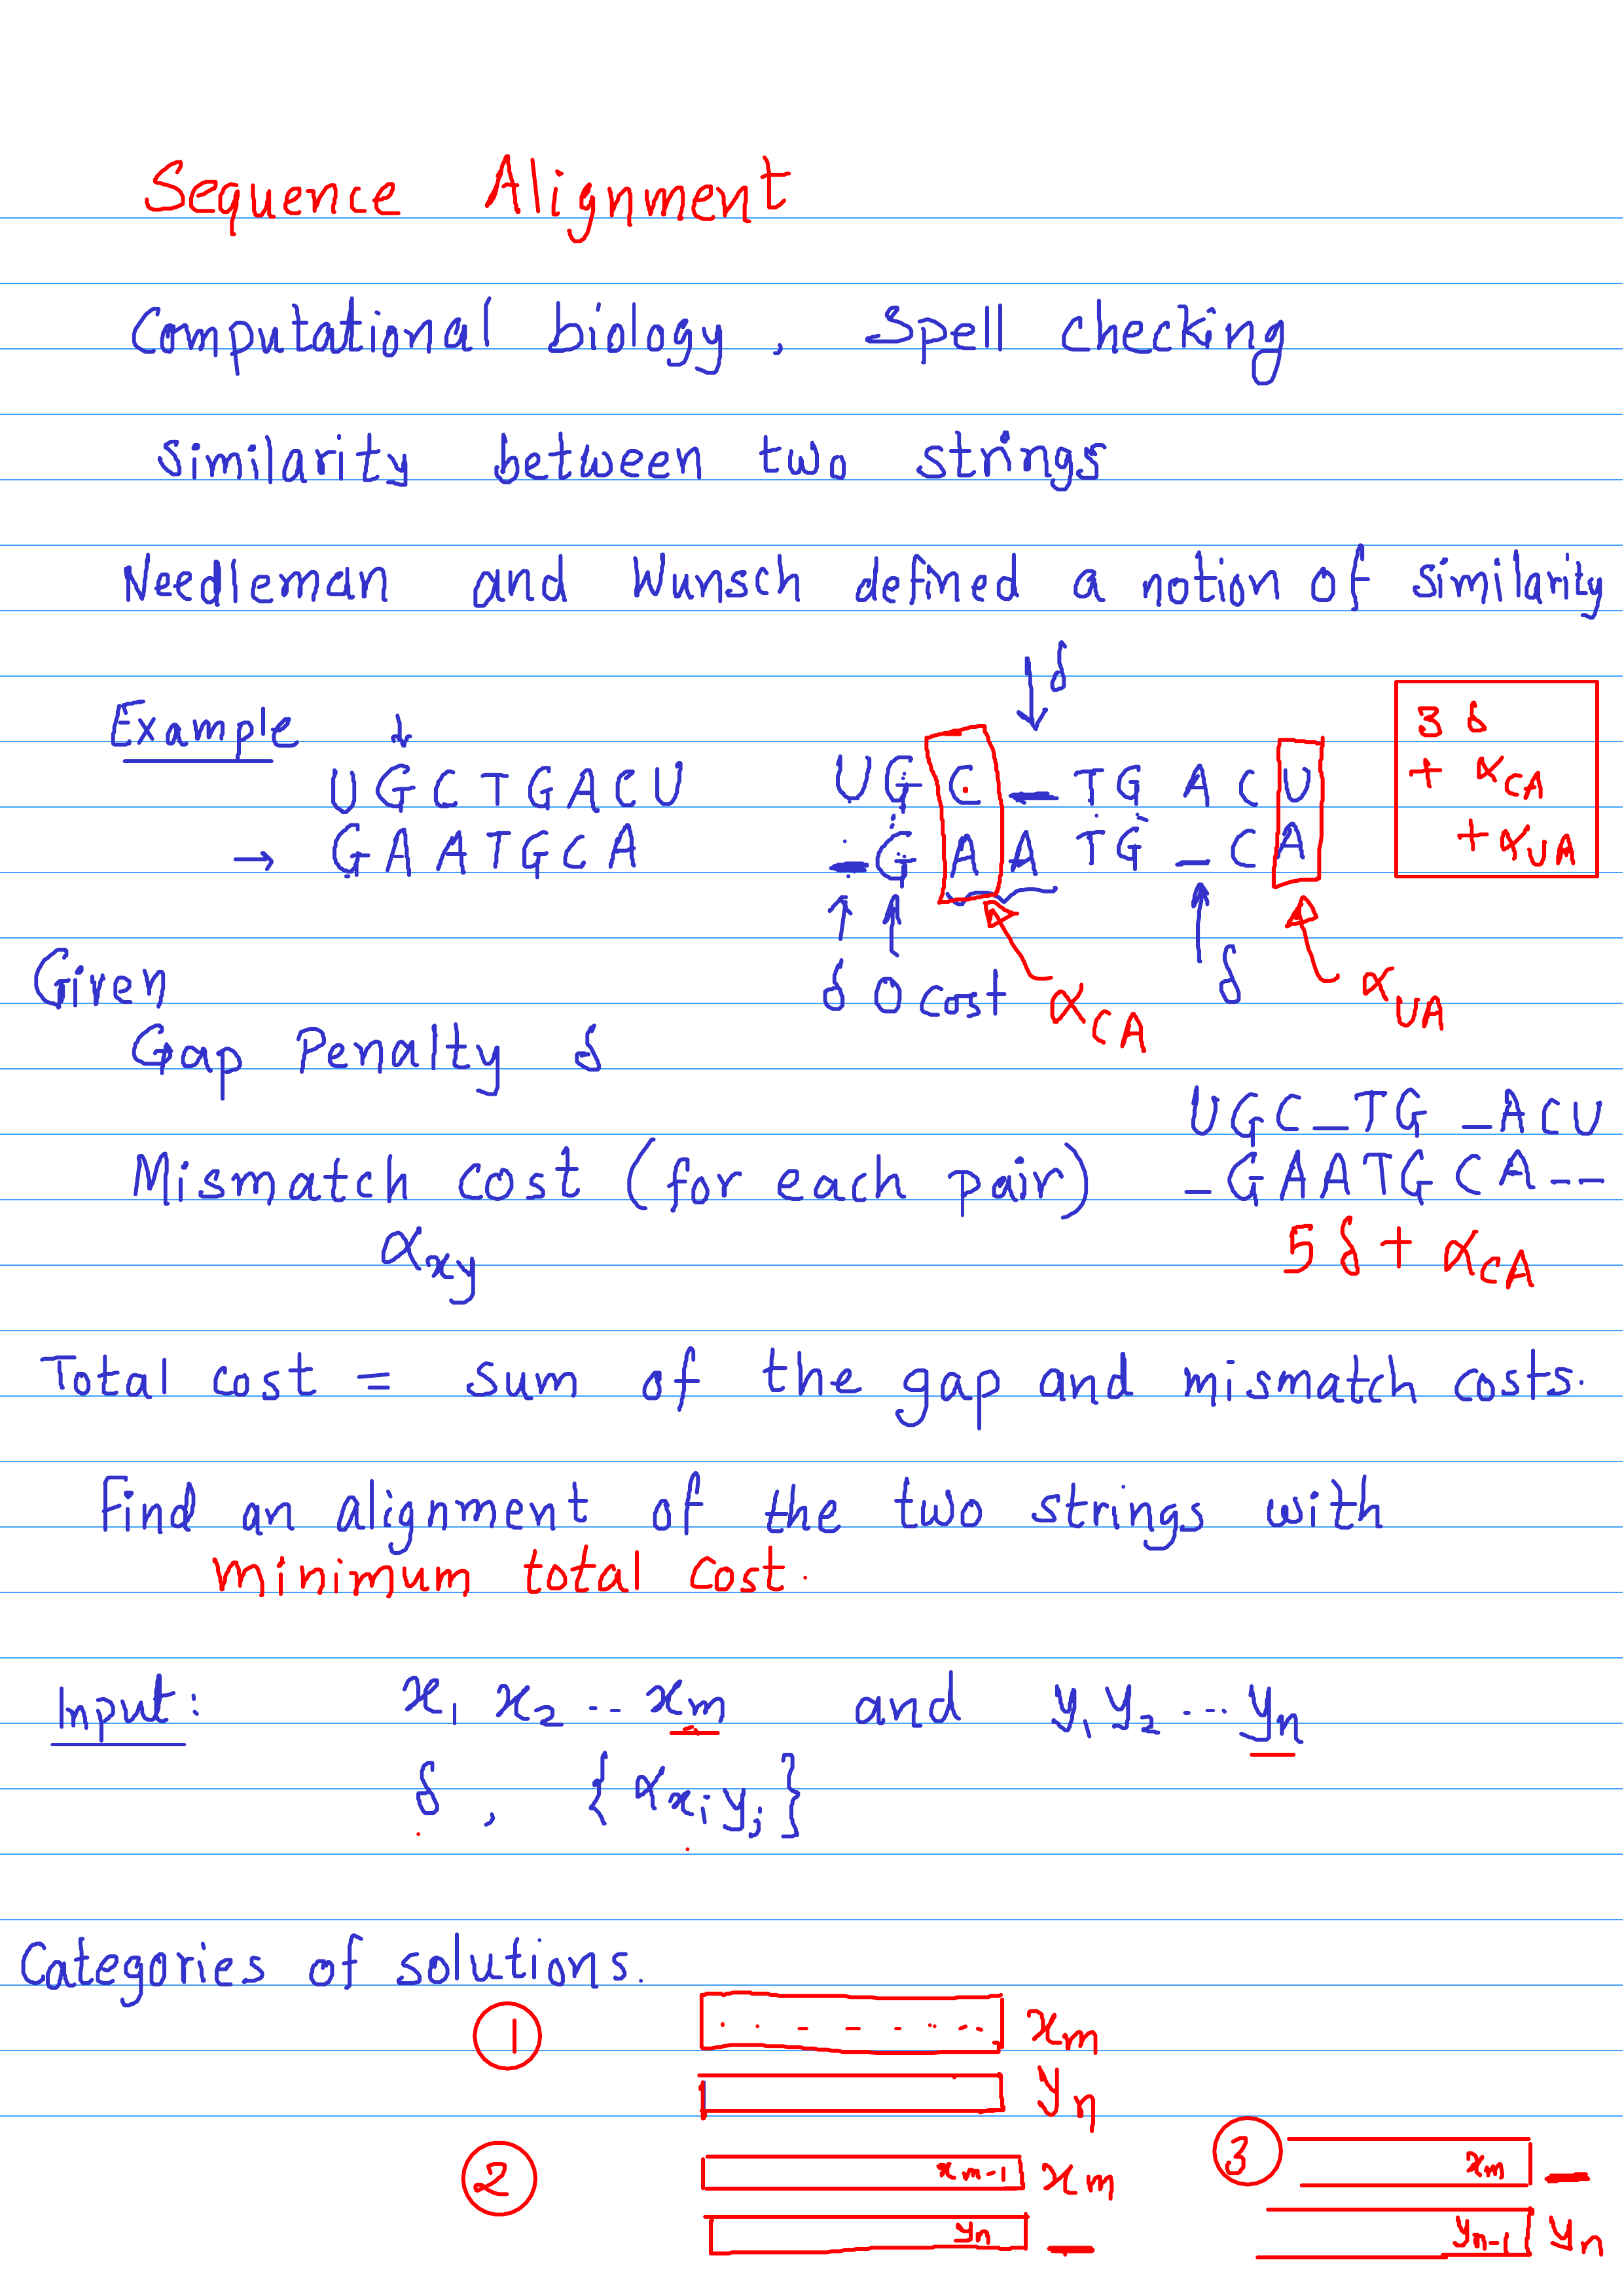 Sequence Alignment
Computational biology, Spell checking
similarity between two strings
Needleman and Wunsch defined a notion of similarity
↓ δ
Example ↓
UGCTGACU
→ GAATGCA
UGC_TGACU
_GAATG_CA
3 δ
+ α_CA
+ α_UA
δ 0 cost α_CA δ α_UA
Given
Gap Penalty δ
UGC_TG_ACU
Mismatch cost (for each pair)
_GAATGCA--
α_xy
5 δ + α_CA
Total cost = sum of the gap and mismatch costs.
Find an alignment of the two strings with
minimum total cost.
Input: x_1 x_2 --- x_m and y_1 y_2 --- y_n
δ, {α_{x_i y_j}}
Categories of solutions.
① x_m
y_n
② x_{m-1} x_m
y_n _
③ x_m _
y_{n-1} y_n